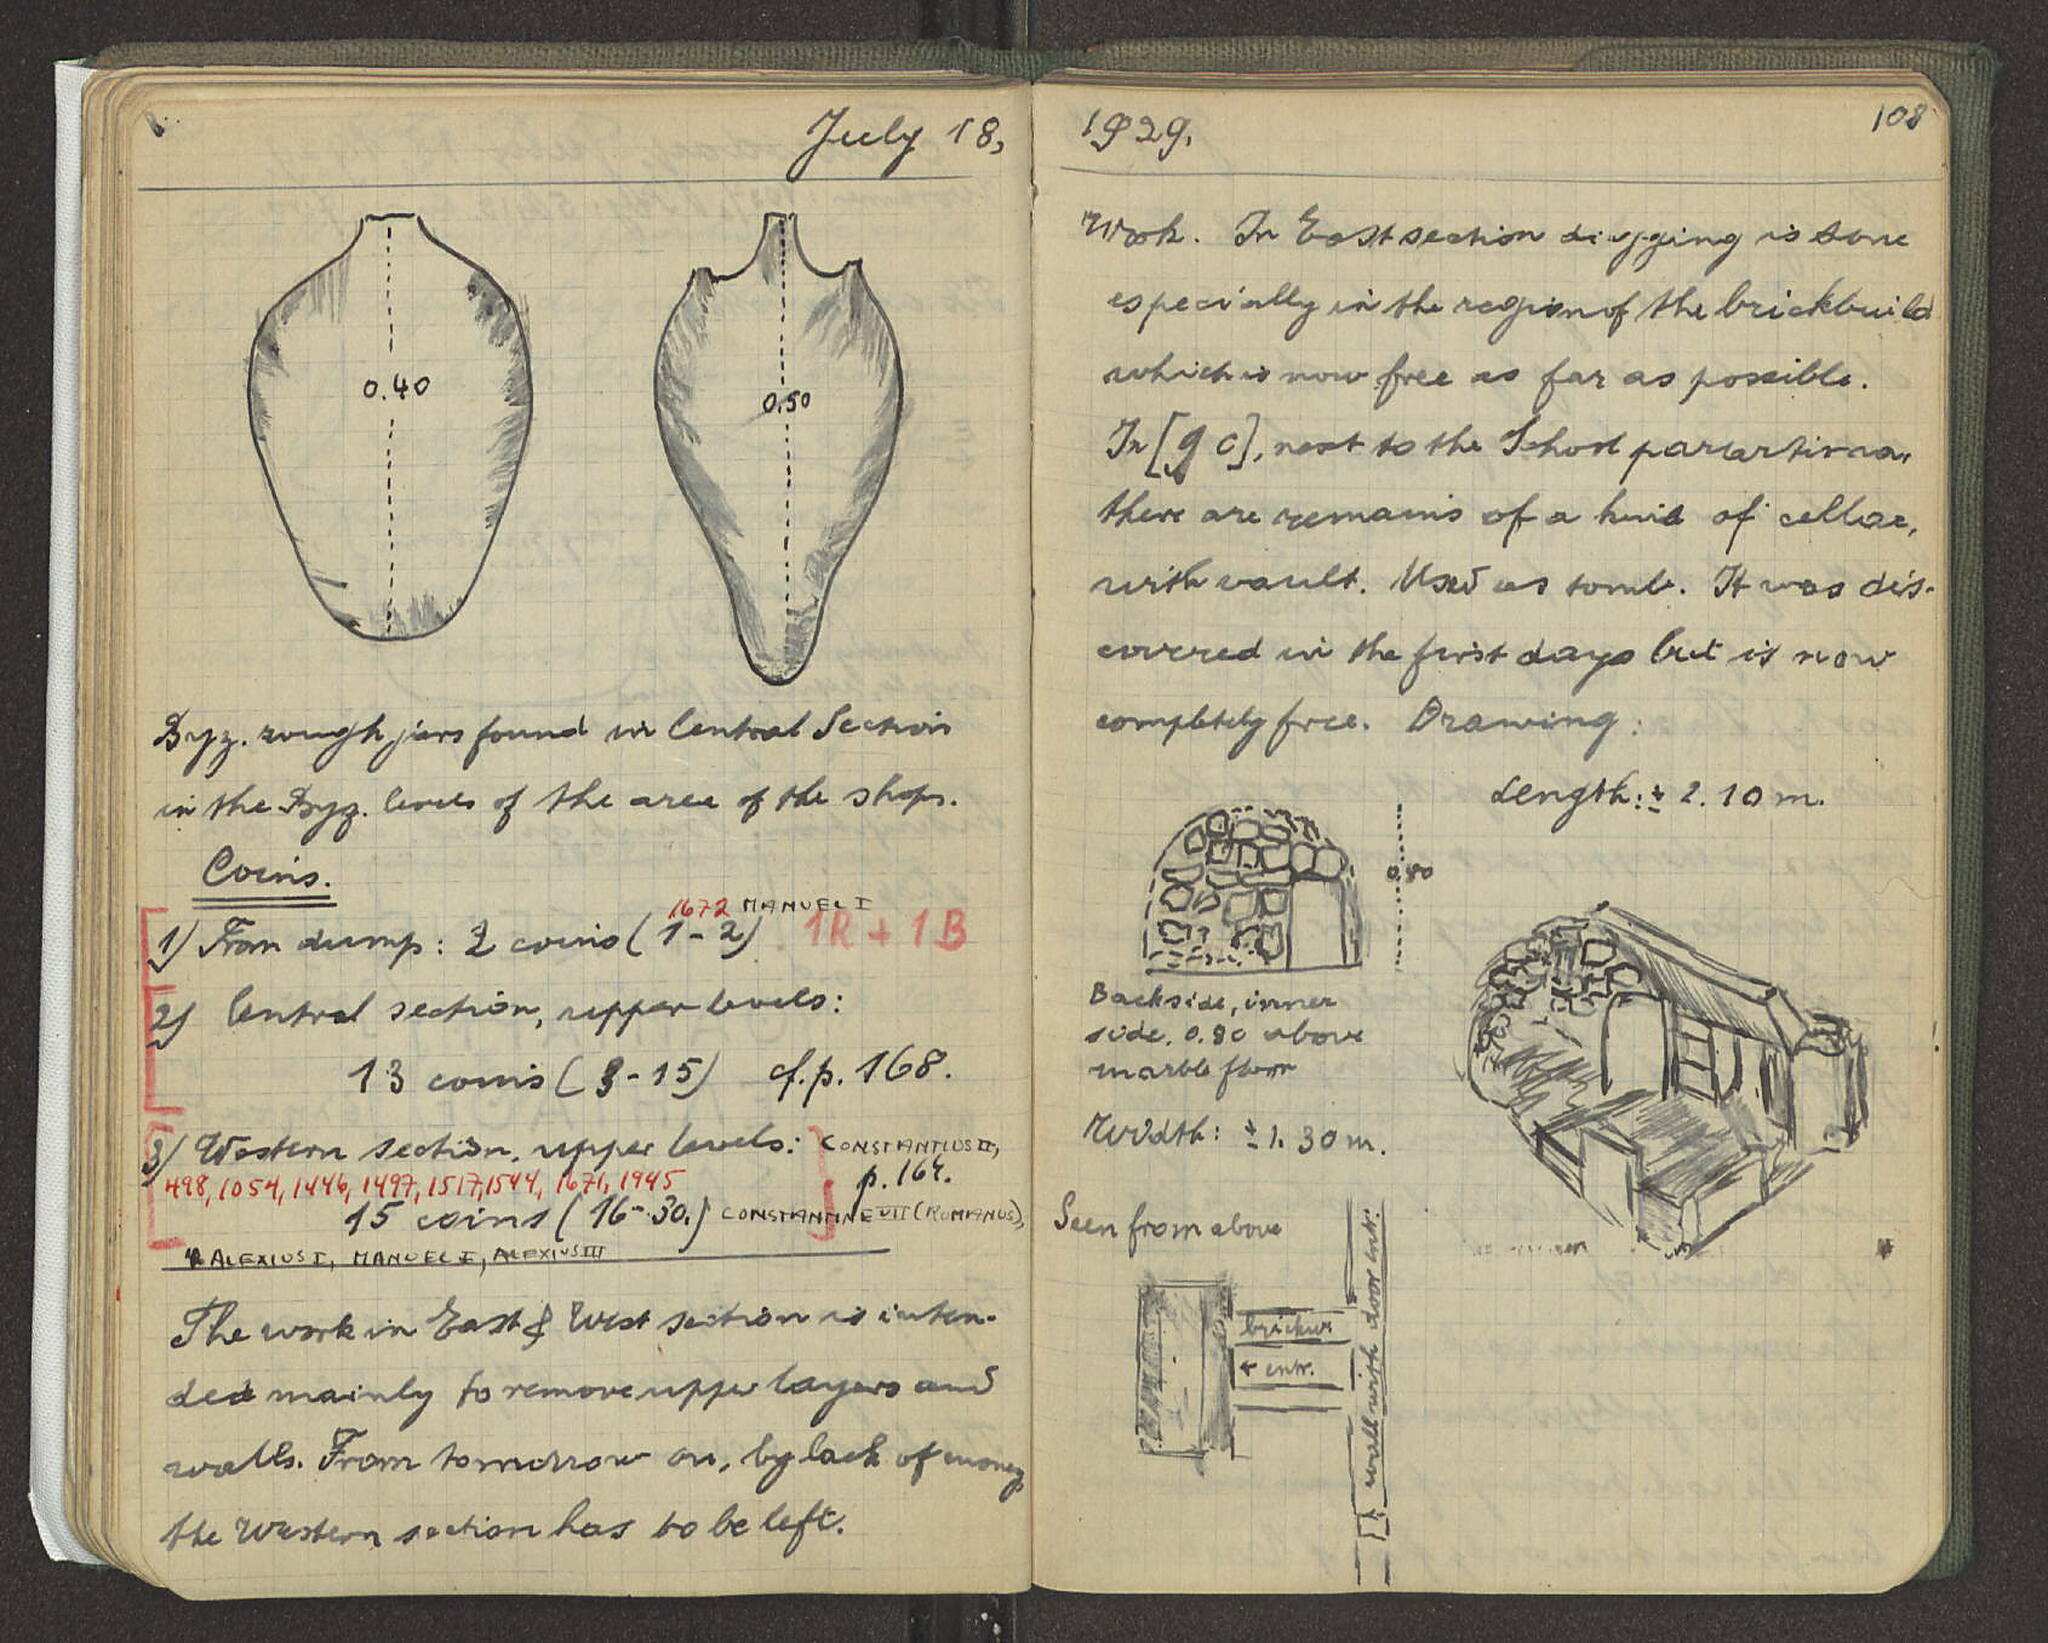 July 18,
0.40
0.50
Byz. rough jars found in Central Section
in the Byz. levels of the area of the shops.
Coins.
1672 MANUEL I
1) From dump: 2 coins (1-2) 1R + 1B
2) Central section, upper levels:
13 coins (3-15) cf. p. 168.
3) Western section, upper levels: CONSTANTIUS II,
498, 1054, 1446, 1497, 1517, 1544, 1671, 1945 p. 164.
15 coins (16-30.) CONSTANTINE VII (ROMANUS),
ALEXIUS I, MANUEL I, ALEXIUS III
The work in East & West section is inten-
ded mainly to remove upper layers and
walls. From tomorrow on, by lack of money
the Western section has to be left.
1929.
108
Work. In East section digging is done
especially in the region of the brickbuild
which is now free as far as possible.
In [g c], next to the
there are remains of a kind of cellar,
with vault. Used as tomb. It was dis-
covered in the first days but is now
completely free. Drawing:
Length: ± 2.10 m.
0.80
Backside, inner
side. 0.80 above
marble floor
Width: ± 1.30 m.
Seen from above
brickw.
← entr.
wall with door entr.